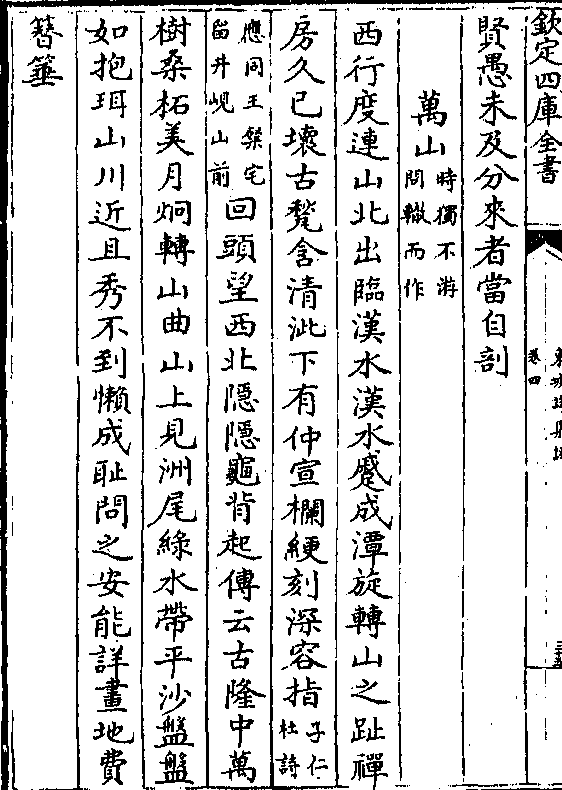 欽定四庫全書
卷四
賢愚未及分來者當自剖
萬山時獨不游問轍而作
西行度連山北出臨漢水漢水蹙成潭旋轉山之趾禪
房久已壞古甃含清泚下有仲宣欄綆刻深容指子仁杜詩
應同王粲宅留井峴山前回頭望西北隱隱龜背起傳云古隆中萬
樹桑柘美月炯轉山曲山上見洲尾綠水帶平沙盤盤
如抱珥山川近且秀不到懶成耻問之安能詳畫地費
簪箠